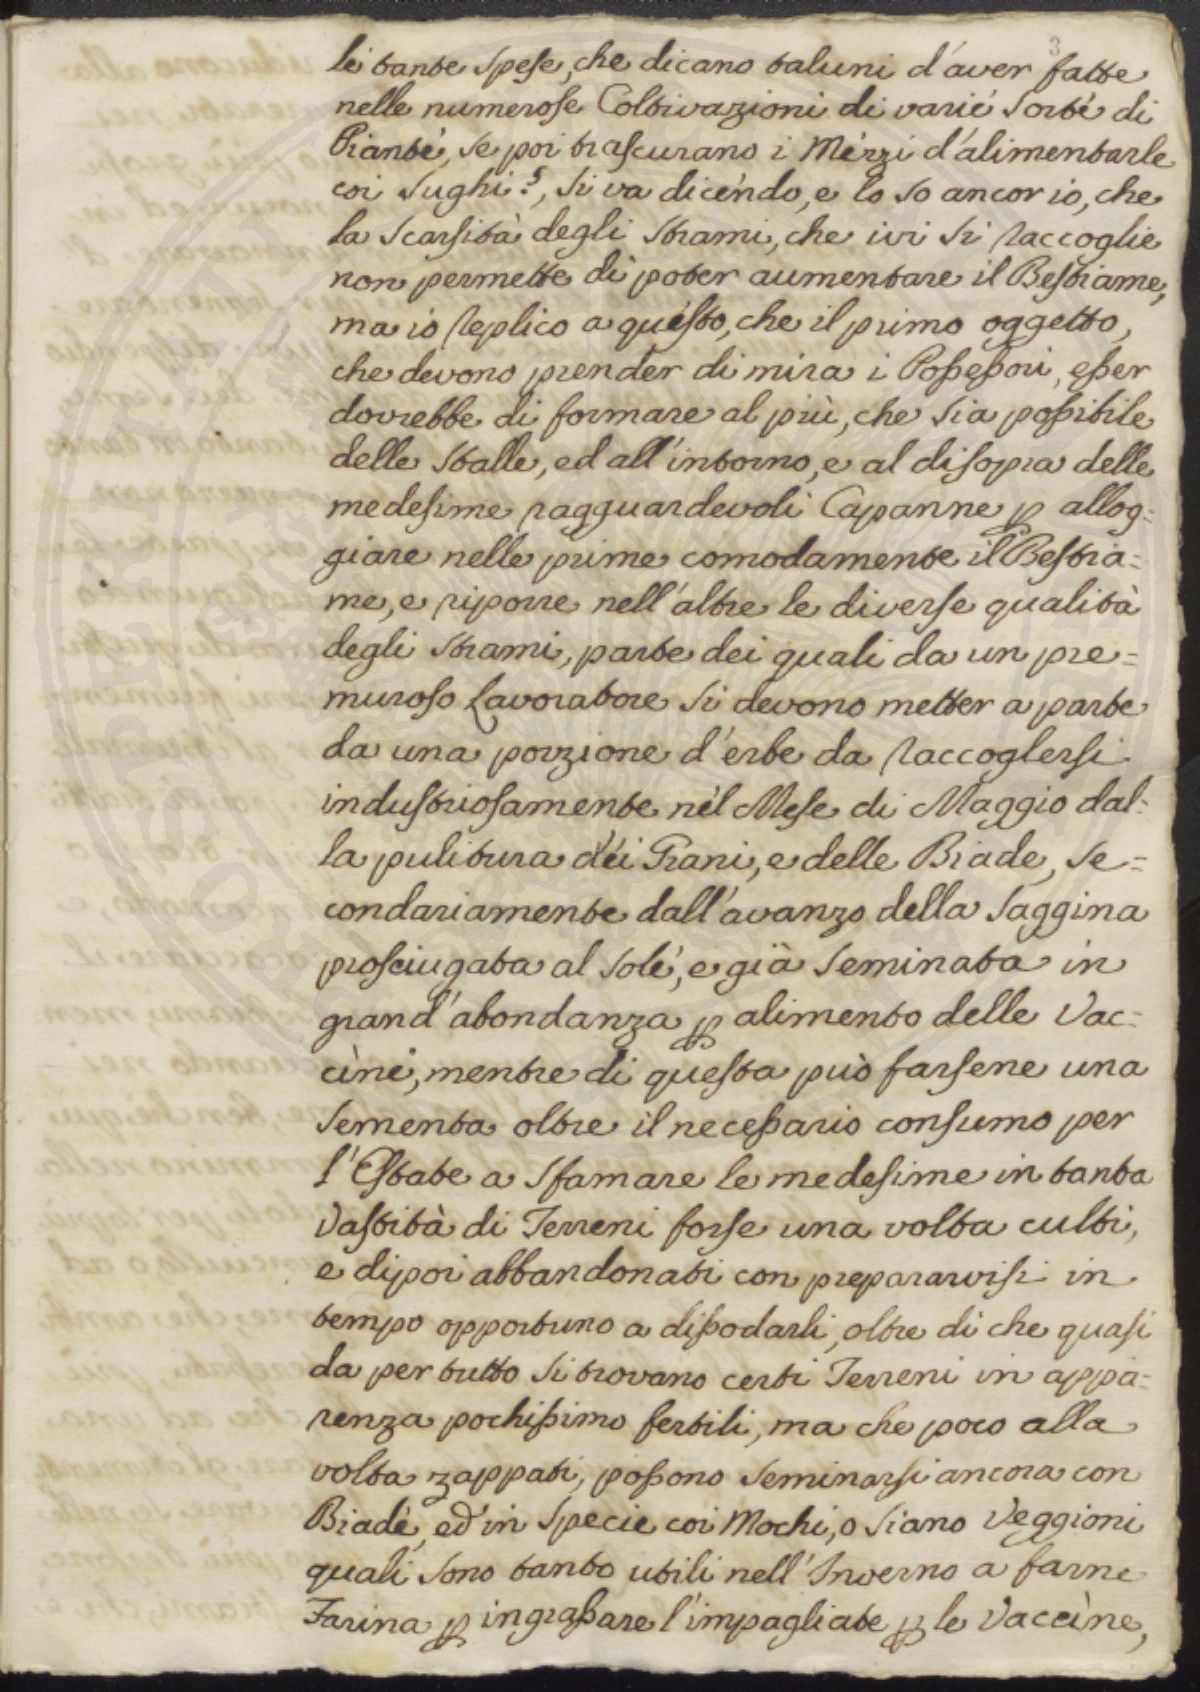 3
le tante spese, che dicano taluni d'aver fatte
nelle numerose Coltivazioni di varie sorte di
Piante, se poi trascurano i Mezzi d'alimentarle
coi sughi?, si va dicendo, e lo so ancor io, che
la scarsità degli strami, che ivi si raccoglie
non permette di poter aumentare il Bestiame,
ma io replico a questo, che il primo oggetto,
che devono prender di mira i Possessori, esser
dovrebbe di formare al più, che sia possibile
delle stalle, ed all'intorno, e al disopra delle
medesime ragguardevoli Capanne p allog=
giare nelle prime comodamente il Bestia=
me, e riporre nell'altre le diverse qualità
degli strami, parte dei quali da un pre=
muroso Lavoratore si devono metter a parte
da una porzione d'erbe da raccoglersi
industriosamente nel Mese di Maggio dal=
la pulitura dei Grani, e delle Biade, se=
condariamente dall'avanzo della Saggina
prosciugata al sole, e già seminata in
grand'abondanza p alimento delle Vac=
cine, mentre di questa può farsene una
sementa oltre il necessario consumo per
l'Estate a sfamare le medesime in tanta
vastità di Terreni forse una volta culti,
e dipoi abbandonati con prepararvisi in
tempo opportuno a dissodarli, oltre di che quasi
da per tutto si trovano certi Terreni in appa=
renza pochissimo fertili, ma che poco alla
volta zappati, possono seminarsi ancora con
Biade, ed in specie coi Mochi, o siano Veggioni
quali sono tanto utili nell'Inverno a farne
Farina p ingrassare l'impagliate p le Vaccine,